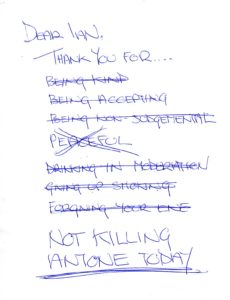 DEAR IAN.
THANK YOU FOR....
BEING KIND
BEING ACCEPTING
BEING NON-JUDGEMENTAL
PEACEFUL
DRINKING IN MODERATION
GIVING UP SMOKING
FORGIVING YOUR ENE
NOT KILLING
ANYONE TODAY